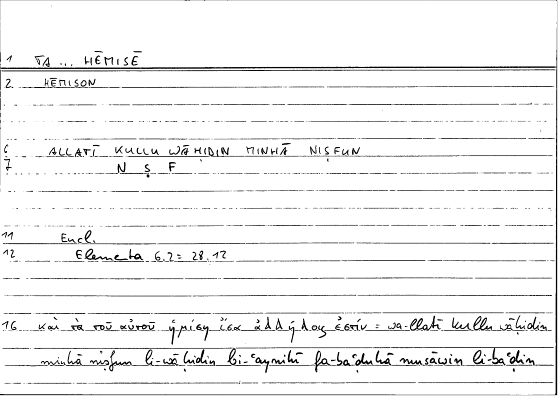 1 TA ... HĒMISĒ
2 HĒMISON
6 ALLATĪ KULLU WĀḤIDIN MINHĀ NIṢFUN
7 N Ṣ F
11 Eucl.
12 Elementa 6.2 = 28.12
16 καὶ τὰ τοῦ αὐτοῦ ἡμίση ἴσα ἀλλήλοις ἐστίν = wa-llatī kullu wāḥidin
minhā niṣfun li-wāḥidin bi-ʿaynihī fa-baʿḍuhā musāwin li-baʿḍin